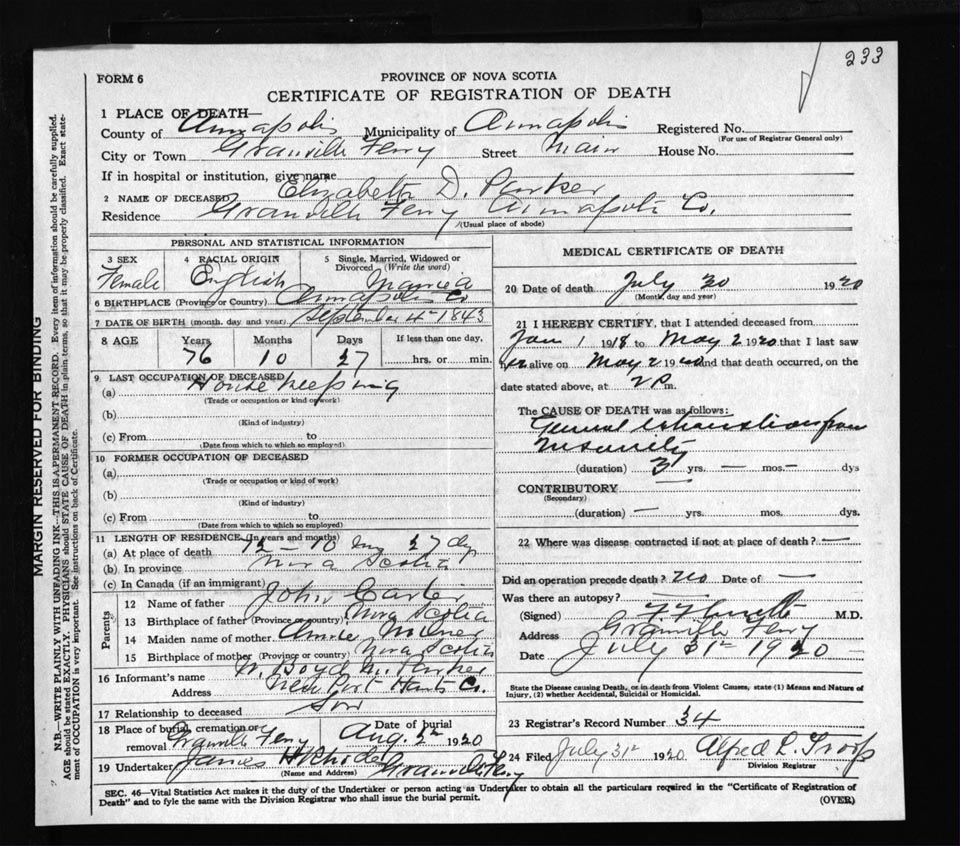 233
FORM 6
PROVINCE OF NOVA SCOTIA
CERTIFICATE OF REGISTRATION OF DEATH
1 PLACE OF DEATH—
County of Annapolis Municipality of Annapolis Registered No.
(For use of Registrar General only)
City or Town Granville Ferry Street Main House No.
If in hospital or institution, give name
2 NAME OF DECEASED Elizabeth D. Parker
Residence Granville Ferry Annapolis Co.
(Usual place of abode)
PERSONAL AND STATISTICAL INFORMATION
3 SEX Female
4 RACIAL ORIGIN English
5 Single, Married, Widowed or Divorced (Write the word) Married
6 BIRTHPLACE (Province or Country) Annapolis Co
7 DATE OF BIRTH (month, day and year) September 4th 1843
8 AGE Years Months Days If less than one day,
76 10 27 hrs. or min.
9 LAST OCCUPATION OF DECEASED
(a) House keeping
(Trade or occupation or kind of work)
(b)
(Kind of industry)
(c) From to
(Date from which to which so employed)
10 FORMER OCCUPATION OF DECEASED
(a)
(Trade or occupation or kind of work)
(b)
(Kind of industry)
(c) From to
(Date from which to which so employed)
11 LENGTH OF RESIDENCE (In years and months)
(a) At place of death 72 – 10 27
(b) In province Nova Scotia
(c) In Canada (if an immigrant)
Parents
12 Name of father John Carter
13 Birthplace of father (Province or country) Nova Scotia
14 Maiden name of mother Milner
15 Birthplace of mother (Province or country) Nova Scotia
16 Informant's name W. Boyd Parker
Address Newport Hants Co.
17 Relationship to deceased Son
18 Place of burial, cremation or removal Granville Ferry
Date of burial Aug. 2nd 1920
19 Undertaker James H Rhodes Granville Ferry
(Name and Address)
MEDICAL CERTIFICATE OF DEATH
20 Date of death July 30 1920
(Month, day and year)
21 I HEREBY CERTIFY, that I attended deceased from
Jan 1 1918 to May 2 1920 that I last saw
her alive on May 2 1920 and that death occurred, on the
date stated above, at 2 P. m.
The CAUSE OF DEATH was as follows:
General exhaustion from
Insanity
(duration) 3 yrs. — mos. — dys
CONTRIBUTORY —
(Secondary)
(duration) — yrs. mos. dys.
22 Where was disease contracted if not at place of death? —
Did an operation precede death? no Date of —
Was there an autopsy? —
(Signed) M.D.
Address Granville Ferry
Date July 31st 1920
State the Disease causing Death, or in death from Violent Causes, state (1) Means and Nature of
Injury, (2) whether Accidental, Suicidal or Homicidal.
23 Registrar's Record Number 34
24 Filed July 31st 1920 Alfred L. Troop
Division Registrar
SEC. 46—Vital Statistics Act makes it the duty of the Undertaker or person acting as Undertaker to obtain all the particulars required in the "Certificate of Registration of
Death" and to fyle the same with the Division Registrar who shall issue the burial permit.
(OVER)
MARGIN RESERVED FOR BINDING
N.B.—WRITE PLAINLY WITH UNFADING INK—THIS IS A PERMANENT RECORD. Every item of information should be carefully supplied.
AGE should be stated EXACTLY. PHYSICIANS should STATE CAUSE OF DEATH in plain terms, so that it may be properly classified. Exact statement
of OCCUPATION is very important. See instructions on back of Certificate.